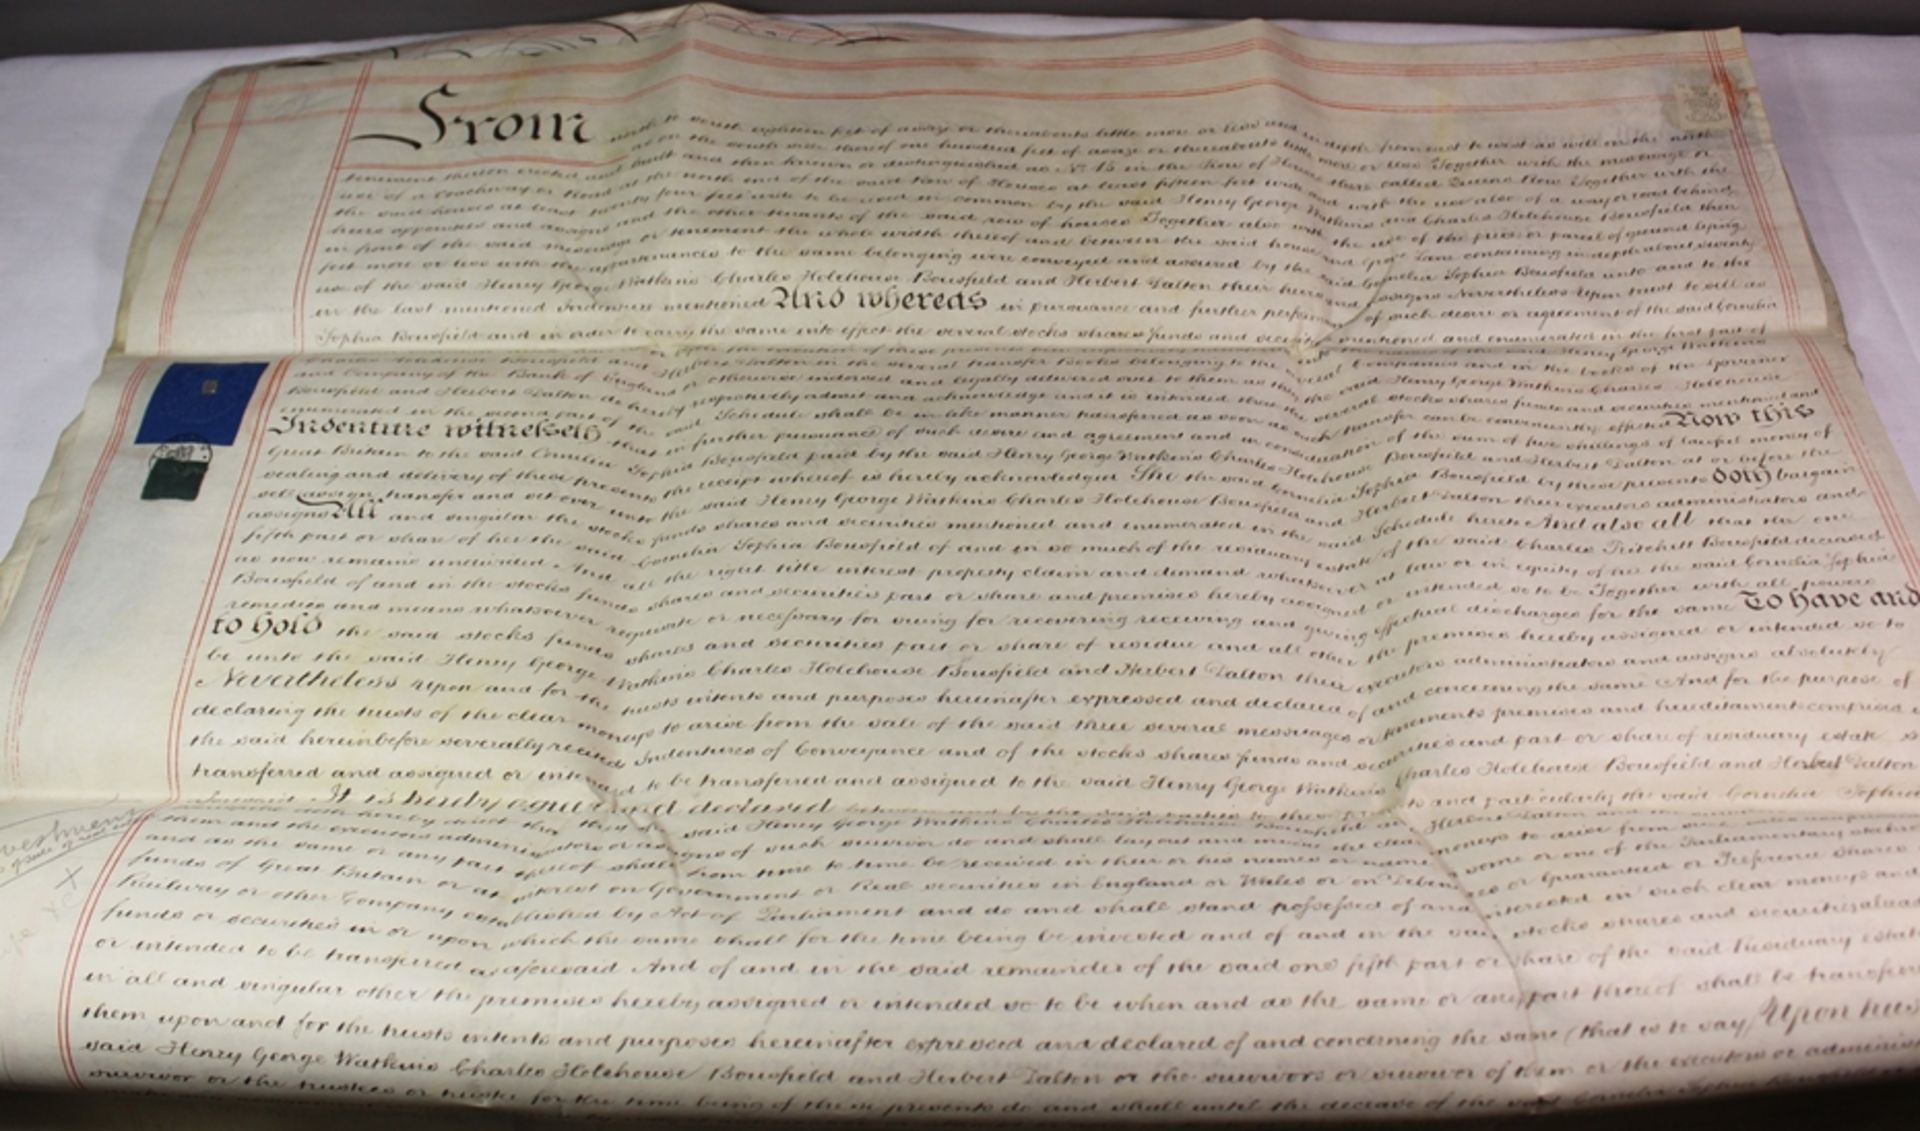 From north to south eighteen feet of assize or thereabouts little more or less and in depth from east to west as well on the north
as on the south side thereof one hundred feet of assize or thereabouts little more or less Together with the messuage or
tenement thereon erected and built and then known or distinguished as No. 15 in the Row of Houses there called Queens Row Together with the
use of a Coachway or Road at the north end of the said Row of Houses at least fifteen feet wide and with the use also of a way or road behind
the said houses at least twenty four feet wide to be used in common by the said Henry George Watkins and Charles Holehouse Bousfield their
heirs appointees and assigns and the other tenants of the said row of houses Together also with the use of the piece or parcel of ground lying
in front of the said messuage or tenement the whole width thereof and between the said house and Lane containing in depth about seventy
feet more or less with the appurtenances to the same belonging were conveyed and assured by the said Cornelia Sophia Bousfield unto and to the
use of the said Henry George Watkins Charles Holehouse Bousfield and Herbert Dalton their heirs and assigns Nevertheless Upon trust to sell as
in the last mentioned Indenture mentioned And whereas in pursuance and further performance of such desire or agreement of the said Cornelia
Sophia Bousfield and in order to carry the same into effect the several stocks shares funds and securities mentioned and enumerated in the first part of
the said Henry George Watkins
Charles Holehouse Bousfield and Herbert Dalton in the several Transfer Books belonging to the several Companies and in the books of the Governor
and Company of the Bank of England or otherwise indorsed and legally delivered over to them as they the said Henry George Watkins Charles Holehouse
Bousfield and Herbert Dalton do hereby respectively admit and acknowledge and it is intended that the several stocks shares funds and securities mentioned and
enumerated in the second part of the said Schedule shall be in like manner transferred as soon as such transfer can be conveniently effected Now this
Indenture witnesseth that in further pursuance of such desire and agreement and in consideration of the sum of five shillings of lawful money of
Great Britain to the said Cornelia Sophia Bousfield paid by the said Henry George Watkins Charles Holehouse Bousfield and Herbert Dalton at or before the
sealing and delivery of these presents the receipt whereof is hereby acknowledged She the said Cornelia Sophia Bousfield by these presents Doth bargain
sell assign transfer and set over unto the said Henry George Watkins Charles Holehouse Bousfield and Herbert Dalton their executors administrators and
assigns All and singular the stocks funds shares and securities mentioned and enumerated in the said Schedule hereto And also all that the one
fifth part or share of her the said Cornelia Sophia Bousfield of and in so much of the residuary estate of the said Charles Pritchett Bousfield deceased
as now remains undivided And all the right title interest property claim and demand whatsoever at law or in equity of her the said Cornelia Sophia
Bousfield of and in the stocks funds shares and securities part or share and premises hereby assigned or intended so to be Together with all powers
remedies and means whatsoever requisite or necessary for suing for recovering receiving and giving effectual discharges for the same To have and
to hold the said stocks funds shares and securities part or share of residue and all other the premises hereby assigned or intended so to
be unto the said Henry George Watkins Charles Holehouse Bousfield and Herbert Dalton their executors administrators and assigns absolutely
Nevertheless upon and for the trusts intents and purposes hereinafter expressed and declared of and concerning the same And for the purpose of
declaring the trusts of the clear moneys to arise from the sale of the said three several messuages or tenements premises and hereditaments comprised
the said hereinbefore severally recited Indentures of Conveyance and of the stocks shares funds and securities and part or share of residuary estate
transferred and assigned or intended to be transferred and assigned to the said Henry George Watkins Charles Holehouse Bousfield and Herbert Dalton
aforesaid It is hereby agreed and declared between and by the said parties to these to and particularly the said Cornelia Sophia
doth hereby direct that they the said Henry George Watkins Charles Holehouse Bousfield and Herbert Dalton and the
them and the executors administrators or assigns of such survivor do and shall lay out and invest the clear moneys to arise from
and as the same or any part thereof shall from time to time be received in their or his names or name in some or one of the Parliamentary stocks
funds of Great Britain or at interest on Government or Real securities in England or Wales or on or Guaranteed or Preference shares
Railway or other Company established by Act of Parliament and do and shall stand possessed of and interested in such clear moneys and
funds or securities in or upon which the same shall for the time being be invested and of and in the said stocks shares and securities
or intended to be transferred as aforesaid And of and in the said remainder of the said one fifth part or share of the said Residuary estate
in all and singular other the premises hereby assigned or intended so to be when and as the same or any part thereof shall be
them upon and for the trusts intents and purposes hereinafter expressed and declared of and concerning the same (that is to say) Upon trust
said Henry George Watkins Charles Holehouse Bousfield and Herbert Dalton or the survivors or survivor of them or the executors or
survivor or the trustees or trustee for the time being of these presents do and shall until the decease of the said Cornelia Sophia Bousfield